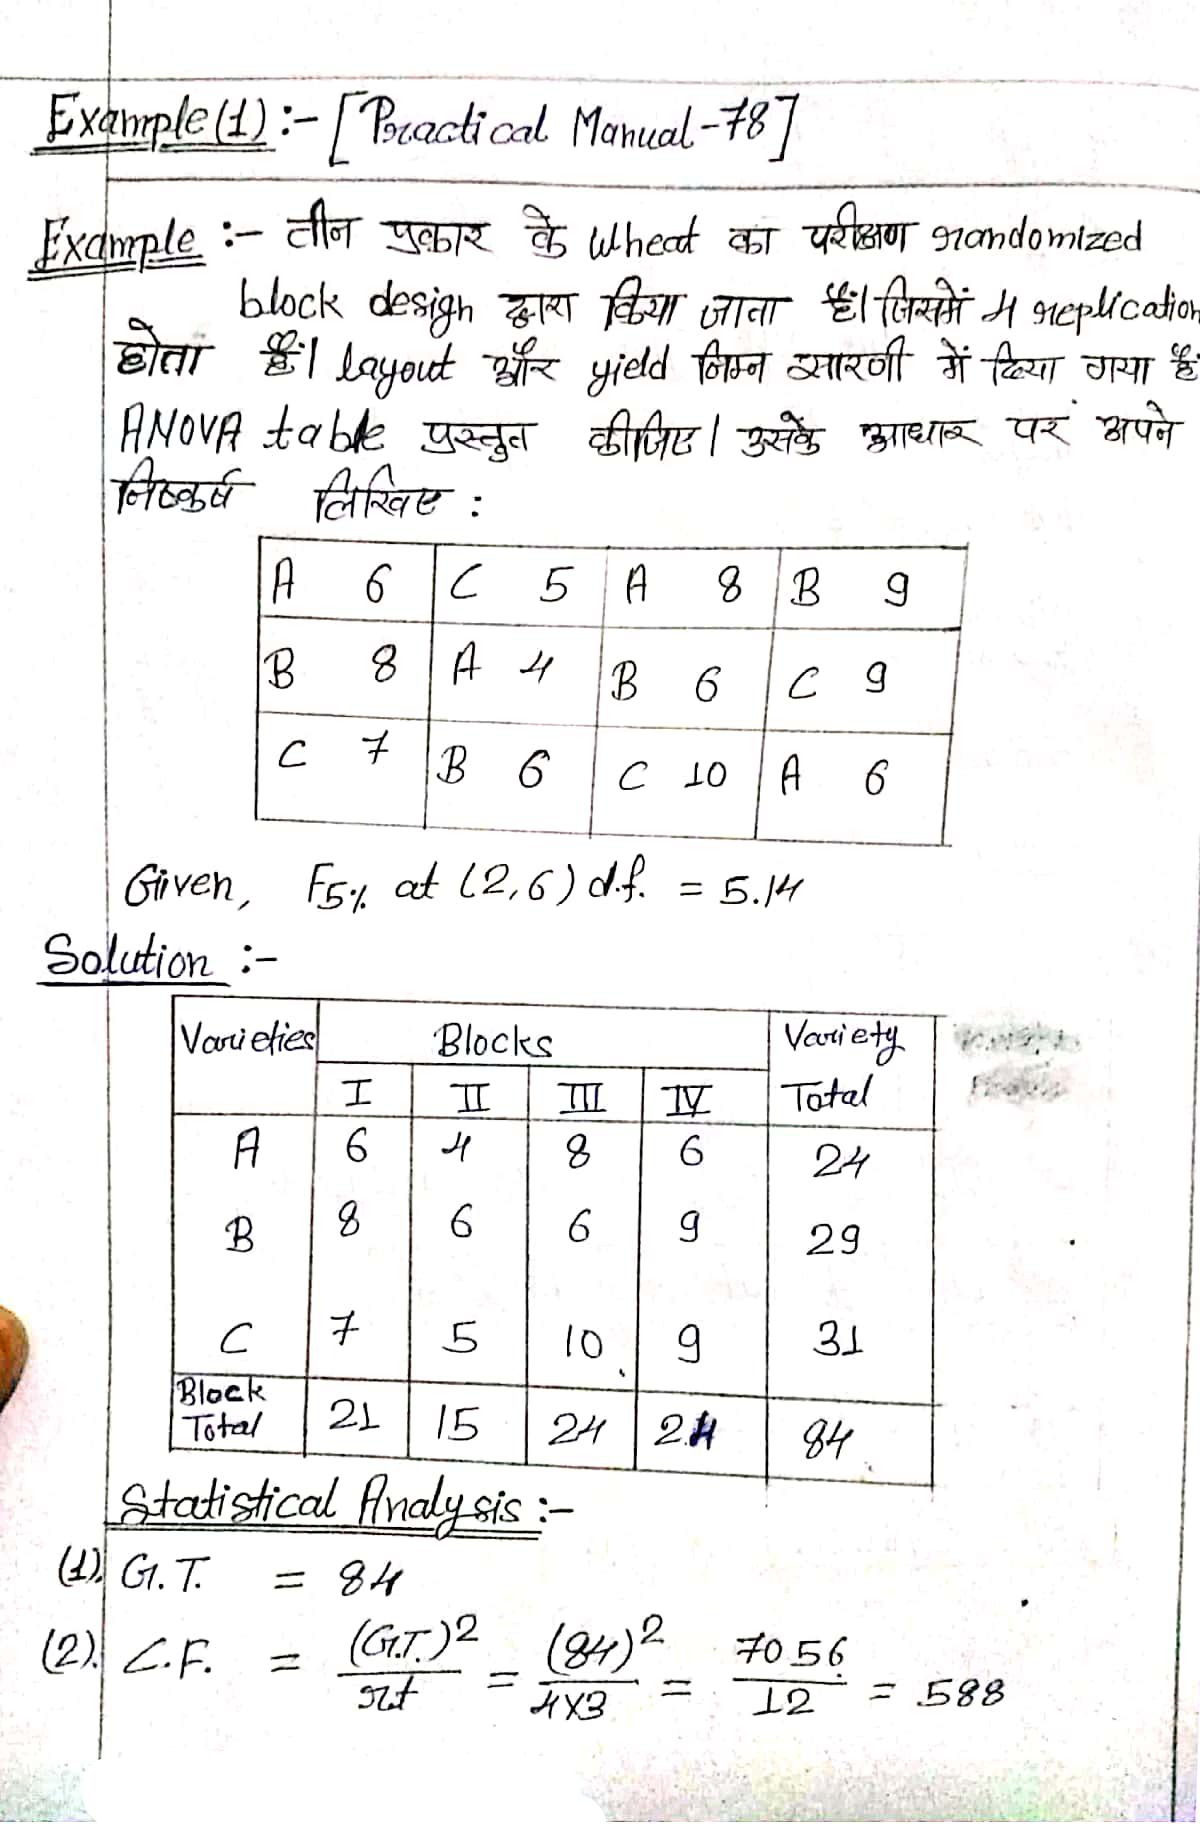 Example (1) :- [Practical Manual-78]
Example :- तीन प्रकार के Wheat का परीक्षण randomized
block design द्वारा किया जाता हैं। जिसमें 4 replication
होता हैं। layout और yield निम्न सारणी में दिया गया हैं
ANOVA table प्रस्तुत कीजिए। उसके आधार पर अपने
निष्कर्ष लिखिए :
A 6 C 5 A 8 B 9
B 8 A 4 B 6 C 9
C 7 B 6 C 10 A 6
Given, F5% at (2,6) d.f. = 5.14
Solution :-
Varieties Blocks Variety
I II III IV Total
A 6 4 8 6 24
B 8 6 6 9 29
C 7 5 10 9 31
Block
Total 21 15 24 24 84
Statistical Analysis :-
(1). G.T. = 84
(2). C.F. = (G.T.)2 / rt = (84)2 / 4×3 = 7056 / 12 = 588